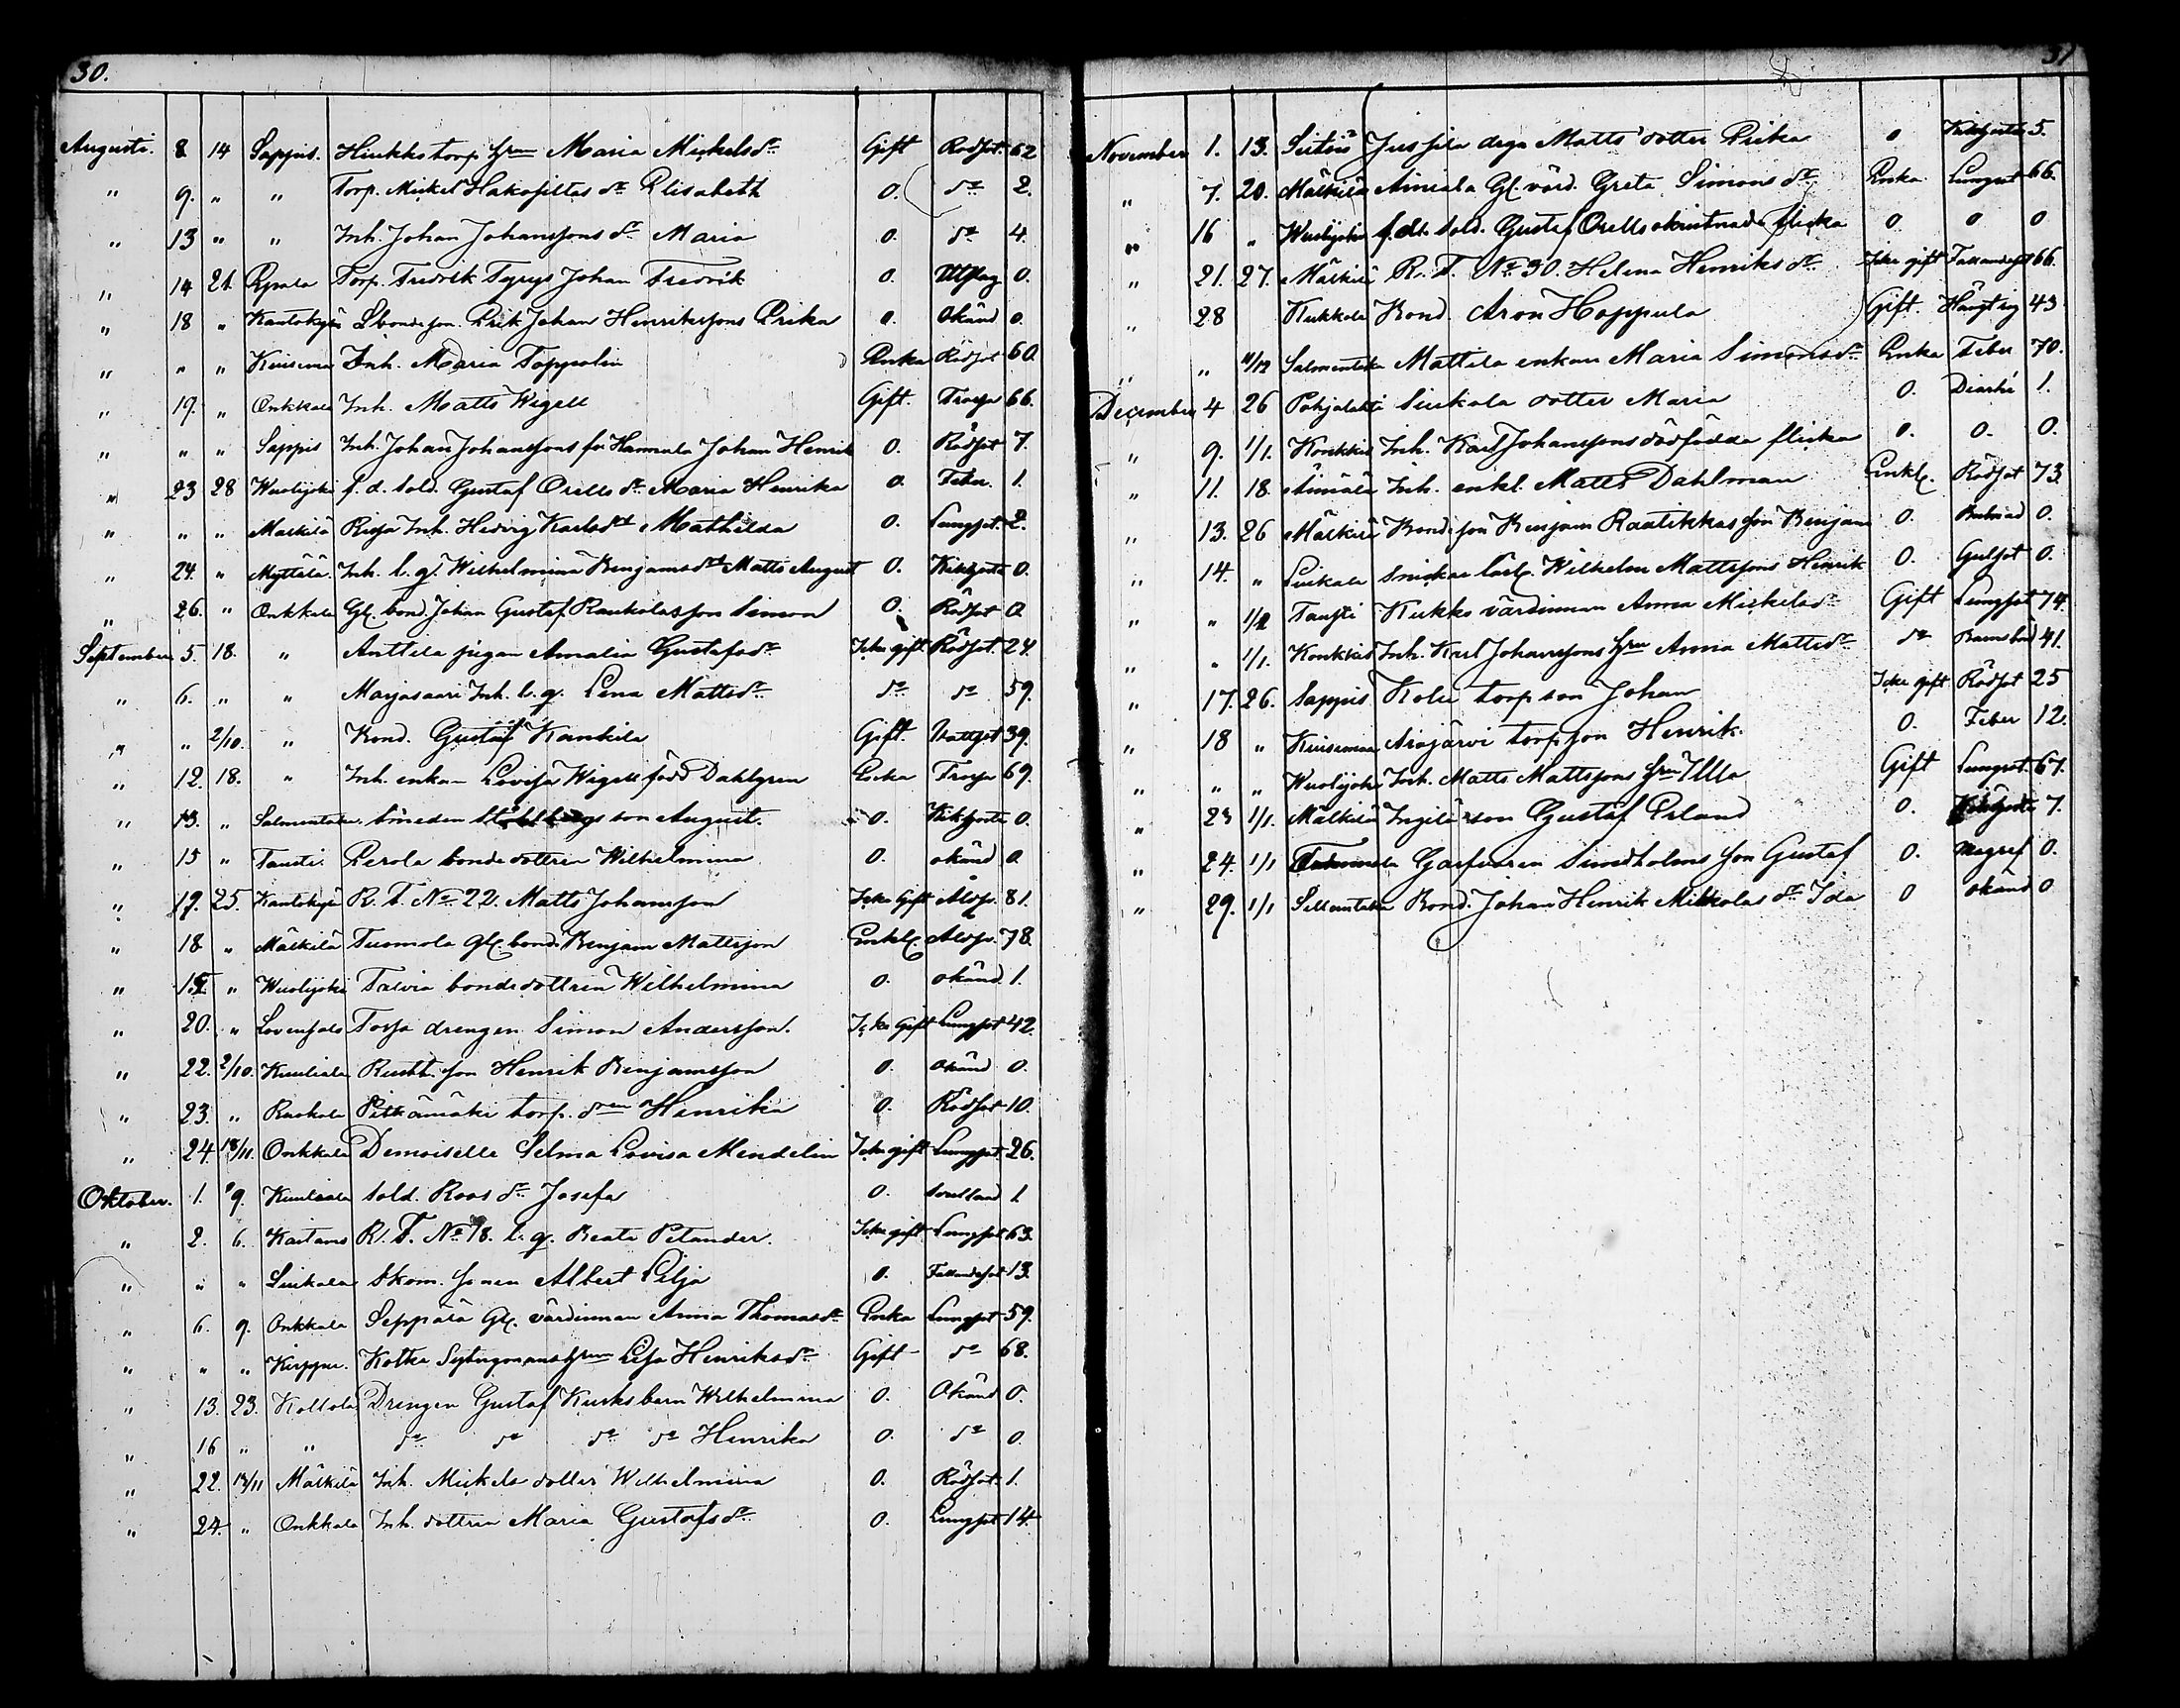 30.
Augusti. 8 14 Sappis. Hukko torp. hrun Maria Mickelsdr Gift Rödsot. 62
" 9. " " Torp. Mickel Hakosiltas dr Elisabeth 0. do 2.
" 13 " " Inh. Johan Johanssons dr Maria 0. do 4.
" 14 21. Epaala Torp. Fredrik Tyrys Johan Fredrik 0. Utslag 0.
" 18 " Kantokylä Lbondeson. Erik Johan Henrikssons Erika 0. Okänd 0.
" " " Kuisema Inh. Maria Toppolin Enka Rödsot 60.
" 19. " Onkkala Inh. Matts Wigell Gift. Tvorsa 66.
" " " Sappis Inh. Johan Johanssons fr Hannula Johan Henrik 0. Rödsot 7.
" 23 28 Wuolijoki f. d. Sold. Gustaf Orells dr Maria Henrika 0. Feber. 1.
" " " Mälkilä Inh. Hedvig Karlsdr Mathilda 0. Lungsot. 2.
" 24. " Myttälä. Inh. l. q. Wilhelmina Benjamsdr Matts August 0. Kikhosta 0.
" 26. " Onkkala Gl. bond. Johan Gustaf Raukolas son Simon 0. Rödsot 0.
September 5. 18. " Anttila pigan Amalia Gustafsdr Icke gift Rödsot. 24.
" 6. " " Marjasaari Inh. l. q. Lena Mattsdr do do 59.
" " 2/10. " Bond. Gustaf Kankila Gift. Vattsot 39.
" 12. 18. " Inh. enkan Lovisa Wigell född Dahlgren Enka Tvorsa 69.
" 13. " Salmentaka. Smeden son August. 0. Kikhosta 0.
" 15 " Tausti. Perola bondedottren Wilhelmina 0. okänd 0.
" 17. 25. Kantokylä R. T. No 22. Matts Johansson Icke Gift Åldr. 81.
" 18 " Mälkilä Tuomola gl. bond. Benjam Mattsson Enkl. Åldr. 78.
" 19. " Wuolijoki Talvia bondedottren Wilhelmina 0. okänd. 1.
" 20. " Lovensals Torsa drengen Simon Andersson. Icke Gift Lungsot 42.
" 22. 2/10. Kuuliala Rusth. son Henrik Benjamsson 0. okänd 0.
" 23. " Raukola Pitkämäki torp. dren Henrika 0. Rödsot 10.
" 24. 18/11. Onkkala Demoiselle Selma Lovisa Mendelin Icke gift Lungsot. 26.
Oktober. 1. 9. Kuuliala Sold. Roos dr Josefa 0. 1
" 2. 6. Kaitams R. T. No 18. l. q. Beata Petander. Icke gift Lungsot 63.
" " " Liukala Skom. sonen Albert Lilja 0. Fallandesot 13.
" 6. 9. Onkkala Seppälä Gl. värdinnan Anna Thomasdr Enka Lungsot 59.
" " " Kirppu. Kotka Sytningsmans hrun Lisa Henriksdr Gift do 68.
" 13. 23. Kollola Drengen Gustaf Kurks barn Wilhelmina 0. Okänd 0.
" 16 " " do do do do Henrika 0. do 0.
" 22. 13/11 Mälkilä Inh. Mickels dotter Wilhelmina 0. Rödsot. 1.
" 24. " Onkkala Inh. dottren Maria Gustafsdr 0. Lungsot 14.
31
November 1. 13. Seitois Jussila dega Matts dotter Erika 0 Kikhosta 5.
" 7. 20. Mälkilä Aimala Gl. värd. Greta Simonsdr Enka Lungsot 66.
" 16 " Wuolijoki f. dt. Sold. Gustaf Orells okristnade flicka 0. 0 0
" 21. 27. Mälkilä R. T. No 30. Helena Henriksdr Icke gift Fallandesot 66.
" 28 Kukkola Bond. Aron Hoppula Gift. Hängt sig 43
" " 11/12 Salmentaka Mattila enkan Maria Simonsdr Enka Feber 70.
December 4 26 Pohjalahti Siukola dotter Maria 0. Diarhé 1.
" 9. 1/1. Konkkis Inh. Karl Johanssons dödfödda flicka 0. 0. 0.
" 11. 18. Aimälä Inh. enkl. Matts Dahlman Enkl. Rödsot 73.
" 13. 26 Mälkilä Bondeson Benjam Rautikkas son Benjam 0. 0.
" 14. " Liukala Snickar Wilhelm Mattssons Henrik 0. Gulsot 0.
" " 1/2 Tausti Kukko värdinnan Anna Mickelsdr Gift Lungsot 74.
" " 1/1. Konkkis Inh. Karl Johanssons hrun Anna Mattsdr do Barnsbörd 41.
" 17. 26. Sappis Kolu torp son Johan Icke gift Rödsot 25
" 18 " Kuisema Arajärvi torp. son Henrik. 0. Feber 12.
" " " Wuolijoki Inh. Matts Mattssons hrun Ulla Gift Lungsot. 67.
" 23 1/1. Mälkilä Ingilä son Gustaf Erland 0. Kikhosta 7.
" 24. 1/1 Garfvaren Sundholms son Gustaf 0. Magref 0.
" 29. 1/1 Bond. Johan Henrik Mikkolas dr Ida 0 okänd 0